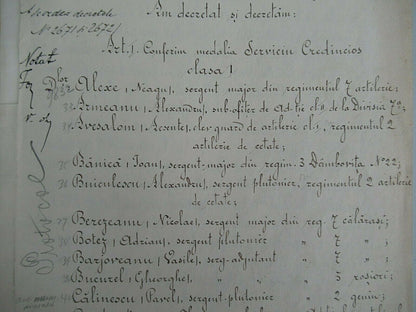 Am decretat și decretăm:
decretele
Nº 2671 & 2672
Art. I. Conferim medalia Serviciu Credincios
Notat
clasa I
Alexe, Neagu, sergent major din regimentul 7 artilerie;
Armeanu, Alexandru, sub-ofițer de ad-tie cl. a, de la Divisia 7a;
Avesalom, Acsente, elev guard de artilerie cl. I, regimentul 2
artilerie de cetate;
35 Bănică, Ioan, sergent-major din regim. 3 Dâmbovița Nº 22;
36 Buiculescu, Alexandru, sergent plutonier, regimentul 2 artilerie
de cetate;
37 Berezeanu, Nicolae, sergent major din reg. 7 călărași;
38 Botez, Adrian, sergent plutonier " 7 " ;
39 Barjoveanu, Vasile, serg-adjutant " 7 " ;
Bucurel, Gheorghe, " " " 3 roșiori;
41 Călinescu, Pavel, sergent-plutonier " 2 geniu;
Protocol